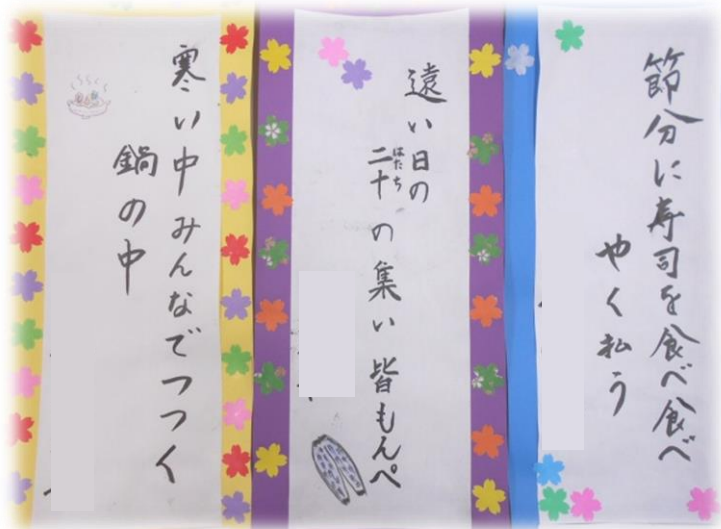 節分に寿司を食べ食べ
やく払う
遠い日の
二十の集い皆もんぺ
はたち
寒い中みんなでつつく
鍋の中